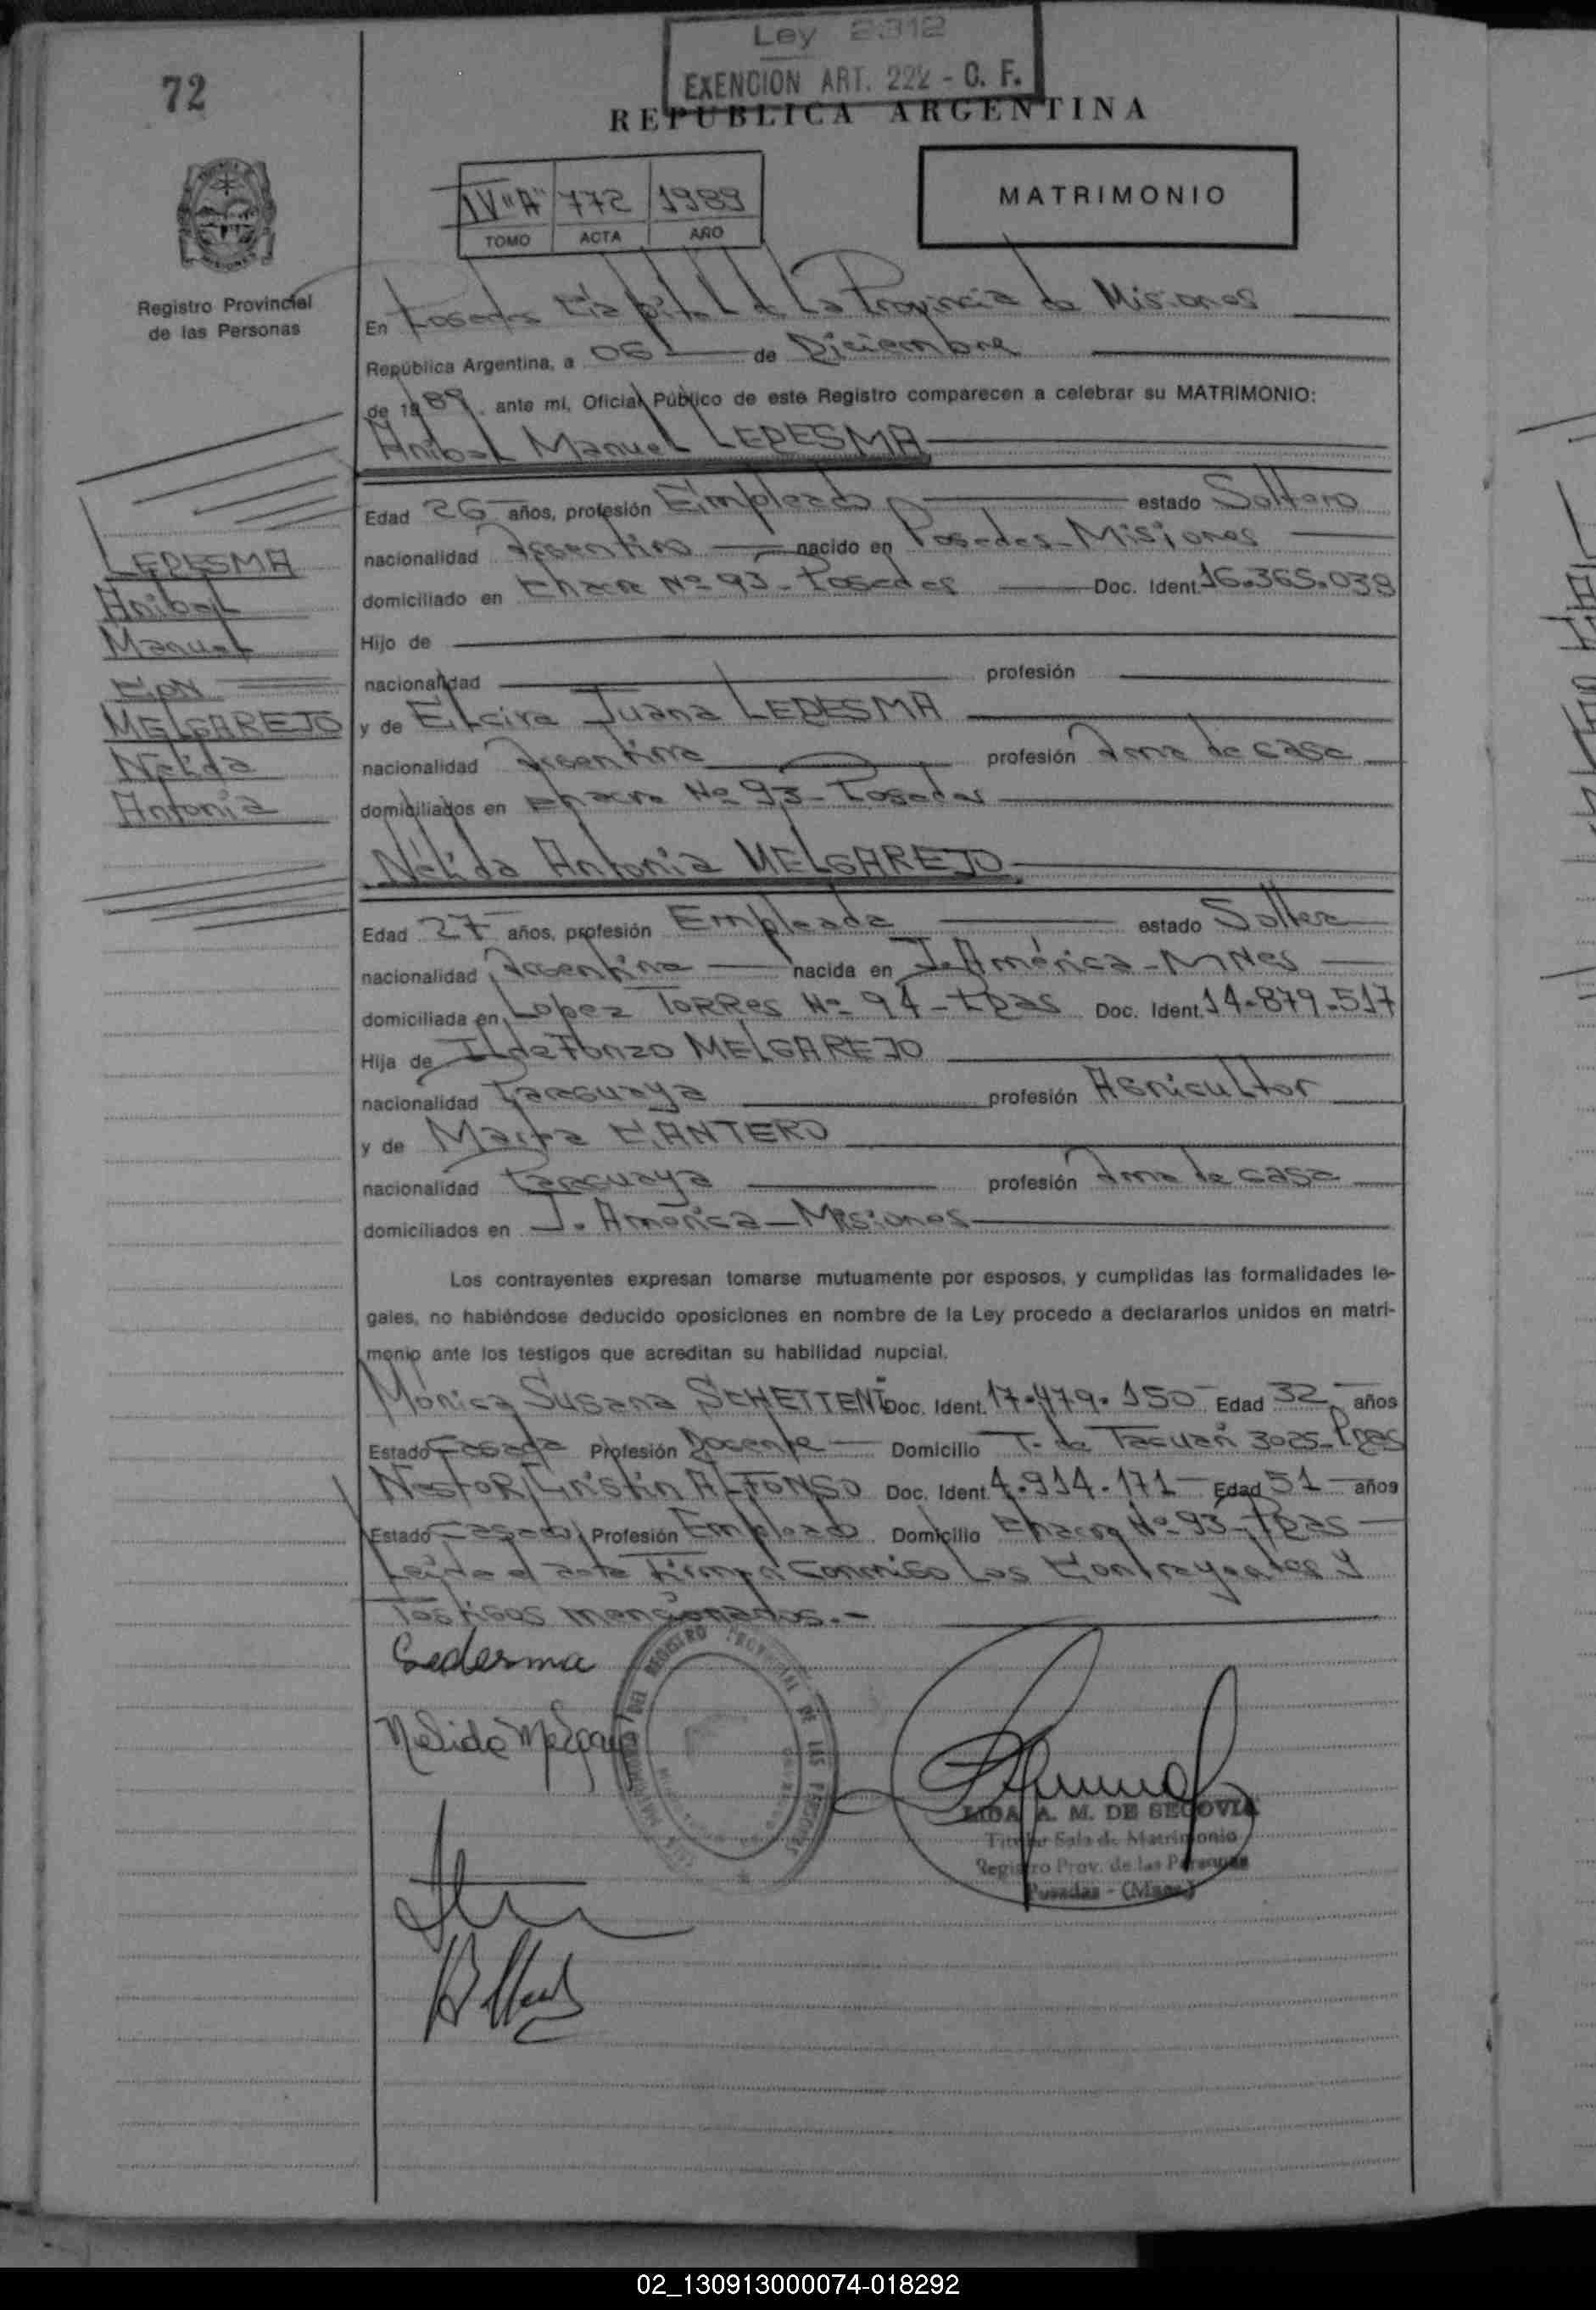 Ley 2312
EXENCION ART. 222 - C. F.
72
REPUBLICA ARGENTINA
IV "A" 772 1989
TOMO ACTA AÑO
MATRIMONIO
Registro Provincial
de las Personas
En Posadas Capital de la Provincia de Misiones
República Argentina, a 06 de Diciembre
de 1989. ante mí, Oficial Público de este Registro comparecen a celebrar su MATRIMONIO:
Anibal Manuel LEDESMA
Edad 26 años, profesión Empleado estado Soltero
nacionalidad Argentino nacido en Posadas - Misiones
domiciliado en Chacra Nº 93 - Posadas Doc. Ident. 16.365.038
Hijo de
nacionalidad profesión
y de Elcira Juana LEDESMA
nacionalidad Argentina profesión Ama de casa
domiciliados en Chacra Nº 93 - Posadas
LEDESMA
Anibal
Manuel
CON
MELGAREJO
Nelida
Antonia
Nélida Antonia MELGAREJO
Edad 27 años, profesión Empleada estado Soltera
nacionalidad Argentina nacida en J. América - MNes
domiciliada en Lopez TORRes Nº 94 - Pdas Doc. Ident. 14.879.517
Hija de IldeFonzo MELGAREJO
nacionalidad Paraguaya profesión Agricultor
y de Marta CANTERO
nacionalidad Paraguaya profesión Ama de casa
domiciliados en J. América - Misiones
Los contrayentes expresan tomarse mutuamente por esposos, y cumplidas las formalidades le-
gales, no habiéndose deducido oposiciones en nombre de la Ley procedo a declararlos unidos en matri-
monio ante los testigos que acreditan su habilidad nupcial.
Mónica Susana SCHETTENI Doc. Ident. 17.479.150 Edad 32 años
Estado Casada Profesión Docente Domicilio T. de Tacuarí 3025 - Pdas
Nestor Cristin ALFONSO Doc. Ident. 4.914.171 Edad 51 años
Estado Casado Profesión Empleado Domicilio Chacra Nº 93 - Pdas
Leida el acta Firman conmigo los Contrayentes y
Testigos mencionados.-
Ledesma
Nelida Melgarejo
REGISTRO PROVINCIAL DE LAS PERSONAS
A. M. DE SEGOVIA
Titular Sala de Matrimonio
Registro Prov. de las Personas
Posadas - (Mnes.)
02_130913000074-018292